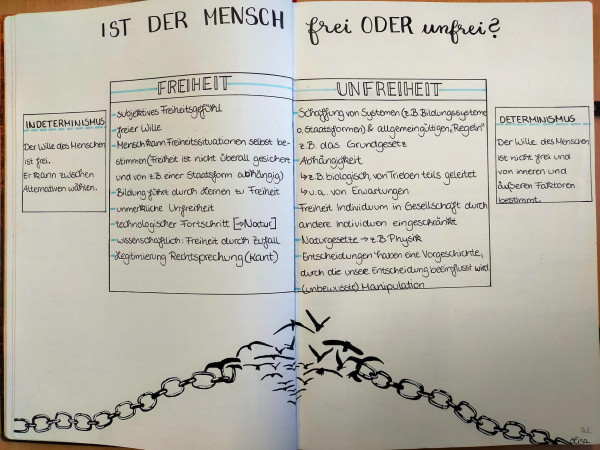 IST DER MENSCH frei ODER unfrei?
INDETERMINISMUS
Der Wille des Menschen
ist frei.
Er kann zwischen
Alternativen wählen.
FREIHEIT
- subjektives Freiheitsgefühl
- freier Wille
- Mensch kann Freiheitssituationen selbst be-
stimmen (Freiheit ist nicht überall gesichert
und von z.B. einer Staatsform abhängig)
- Bildung führt durch Lernen zu Freiheit
- unmerkliche Unfreiheit
- technologischer Fortschritt [→Natur]
- wissenschaftlich: Freiheit durch Zufall
- Legitimierung Rechtsprechung (Kant)
UNFREIHEIT
- Schaffung von Systemen (z.B. Bildungssysteme
o. Staatsformen) & allgemeingültigen „Regeln"
z.B. das Grundgesetz
- Abhängigkeit
↳ z.B. biologisch, von Trieben teils geleitet
↳ u.a. von Erwartungen
- Freiheit Individuum in Gesellschaft durch
andere Individuen eingeschränkt
- Naturgesetze → z.B. Physik
- Entscheidungen haben eine Vorgeschichte,
durch die unsere Entscheidung beeinflusst wird
- (unbewusste) Manipulation
DETERMINISMUS
Der Wille des Menschen
ist nicht frei und
von inneren und
äußeren Faktoren
bestimmt.